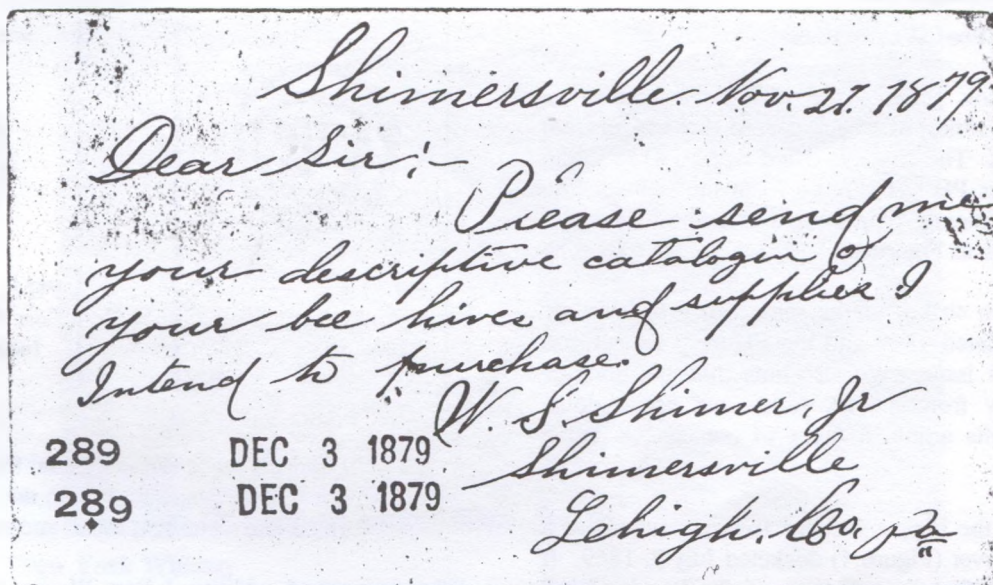 Shimersville. Nov. 27. 1879.
Dear Sir:-
Please send me
your descriptive catalogue of
your bee hives and supplies I
Intend to purchase.
W. S. Shimer, Jr
289 DEC 3 1879 Shimersville
289 DEC 3 1879
Lehigh. Co. Pa